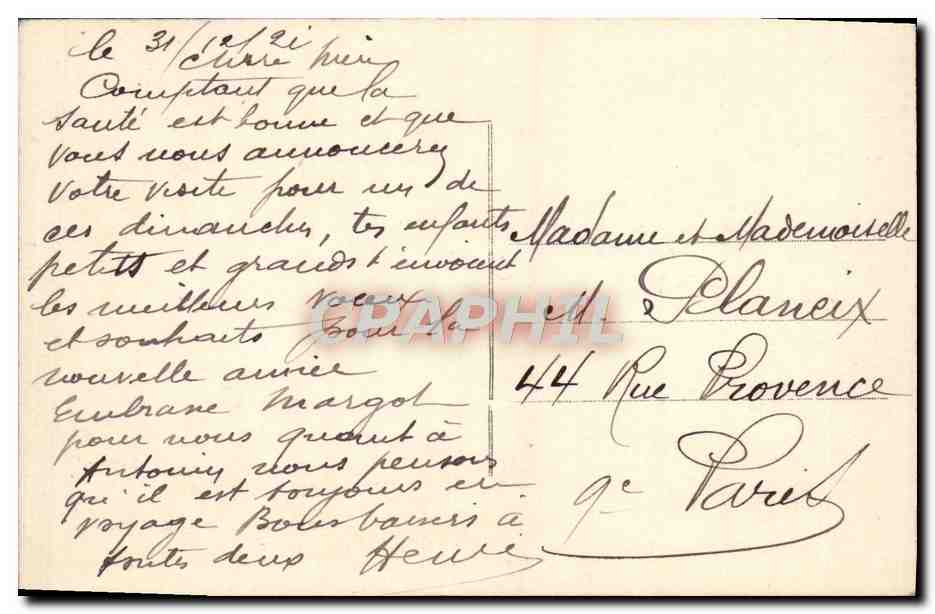 le 31/12/21
Chère Mère
Comptant que la
santé est bonne et que
vous nous annoncerez
votre visite pour un de
ces dimanches, tes enfants
petits et grands t'envoient
les meilleurs voeux
et souhaits pour la
nouvelle année
Embrasse Margot
pour nous quant à
Antonin nous pensons
qu'il est toujours en
voyage Bons baisers à
toutes deux Henri
Madame et Mademoiselle
M. Planeix
44 Rue Provence
9e Paris
CRAPHIL